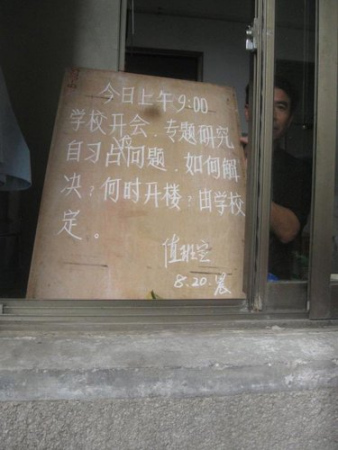 今日上午9:00
学校开会.专题研究
自习占位问题.如何解
决?何时开楼?由学校
定。
值班室
8.20.晨